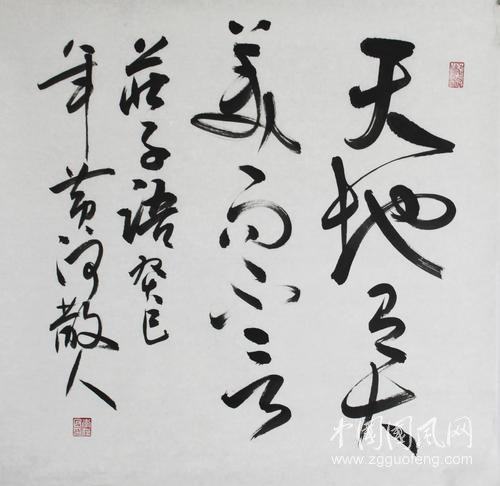 天地有大
美而不言
莊子語癸巳
年黄河散人
中国國风网
www.zgguofeng.com